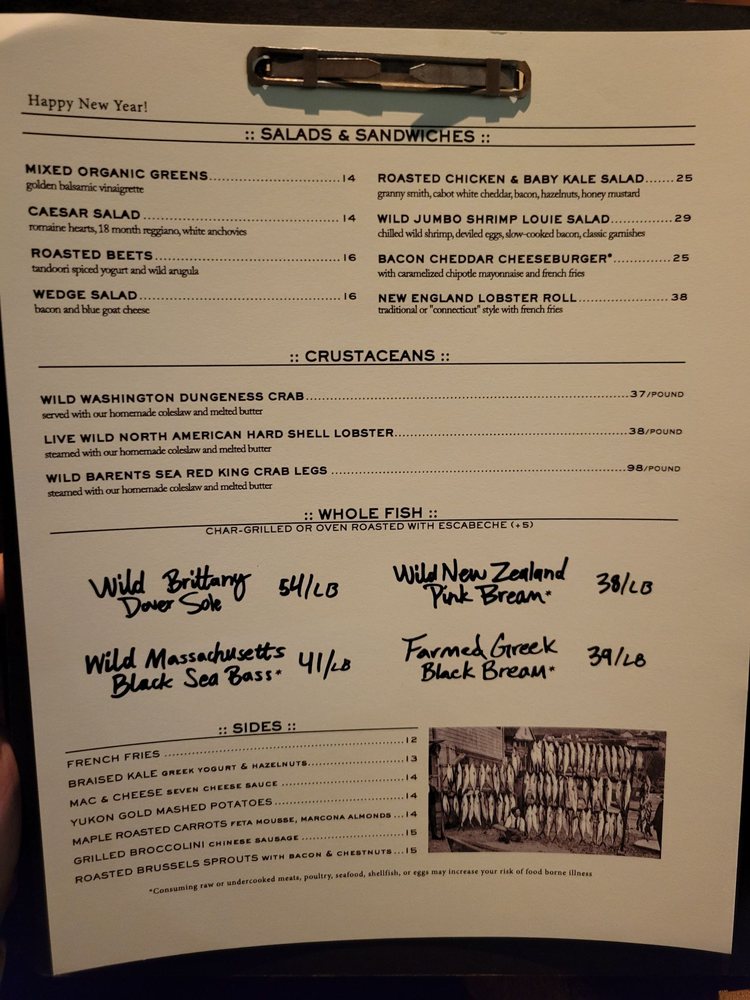 Happy New Year!
:: SALADS & SANDWICHES ::
MIXED ORGANIC GREENS..............................14
golden balsamic vinaigrette
CAESAR SALAD..............................14
romaine hearts, 18 month reggiano, white anchovies
ROASTED BEETS..............................16
tandoori spiced yogurt and wild arugula
WEDGE SALAD..............................16
bacon and blue goat cheese
ROASTED CHICKEN & BABY KALE SALAD.......25
granny smith, cabot white cheddar, bacon, hazelnuts, honey mustard
WILD JUMBO SHRIMP LOUIE SALAD..............29
chilled wild shrimp, deviled eggs, slow-cooked bacon, classic garnishes
BACON CHEDDAR CHEESEBURGER*..............25
with caramelized chipotle mayonnaise and french fries
NEW ENGLAND LOBSTER ROLL....................38
traditional or "connecticut" style with french fries
:: CRUSTACEANS ::
WILD WASHINGTON DUNGENESS CRAB..............................37/POUND
served with our homemade coleslaw and melted butter
LIVE WILD NORTH AMERICAN HARD SHELL LOBSTER..............................38/POUND
steamed with our homemade coleslaw and melted butter
WILD BARENTS SEA RED KING CRAB LEGS..............................98/POUND
steamed with our homemade coleslaw and melted butter
:: WHOLE FISH ::
CHAR-GRILLED OR OVEN ROASTED WITH ESCABECHE (+5)
Wild Brittany
Dover Sole 54/LB
Wild New Zealand
Pink Bream* 38/LB
Wild Massachusetts
Black Sea Bass* 41/LB
Farmed Greek
Black Bream* 39/LB
:: SIDES ::
FRENCH FRIES..............................12
BRAISED KALE GREEK YOGURT & HAZELNUTS..............13
MAC & CHEESE SEVEN CHEESE SAUCE..............14
YUKON GOLD MASHED POTATOES..............14
MAPLE ROASTED CARROTS FETA MOUSSE, MARCONA ALMONDS...14
GRILLED BROCCOLINI CHINESE SAUSAGE..............15
ROASTED BRUSSELS SPROUTS WITH BACON & CHESTNUTS...15
*Consuming raw or undercooked meats, poultry, seafood, shellfish, or eggs may increase your risk of food borne illness